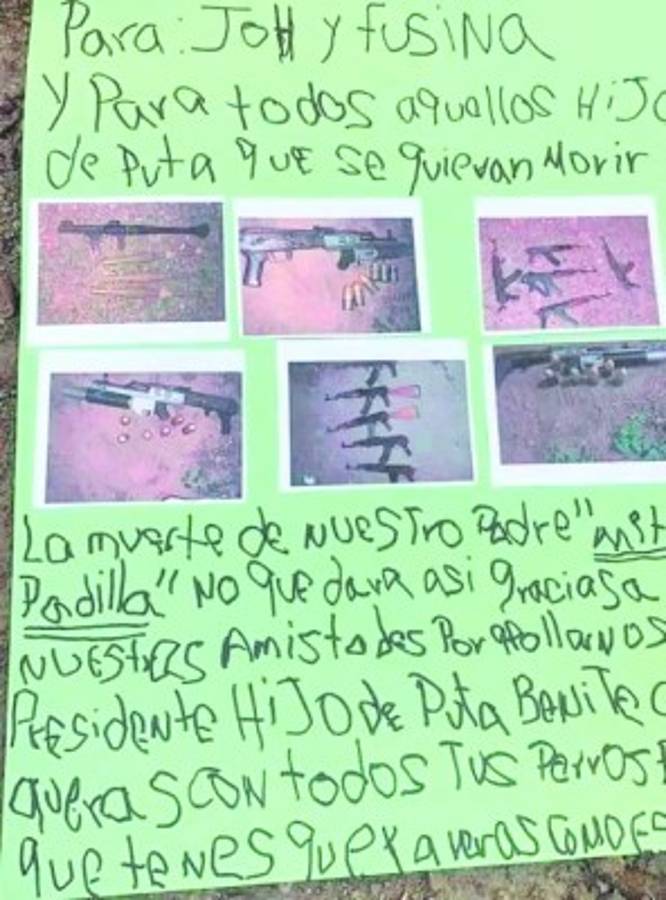 Para: JOH y fusiNa
y Para todos aquellos HiJO
de Puta que se quieran Morir
La muerte de NUESTro Padre "mit
Padilla" NO que dara asi graciasa
NUESTras Amistades Por apollarNOS
PresideNTE HiJO de Puta BENiTE
queras CON todos Tus Perros
que teNES que ya veras COMO ES